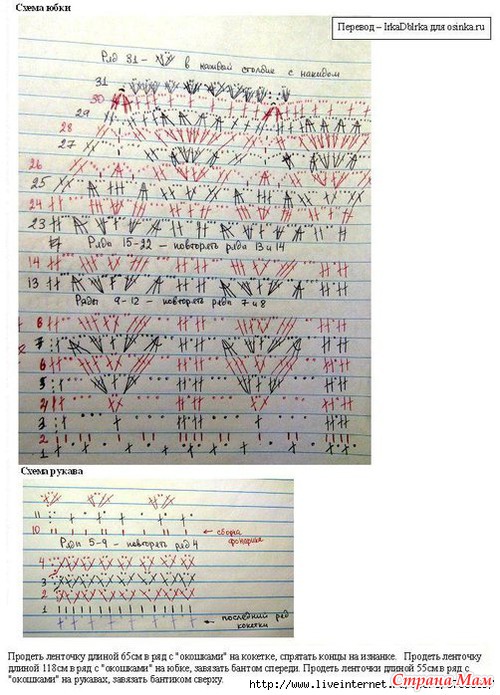 Схема юбки
Перевод – IrkaDblrka для osinka.ru
Ряд 31 - в каждый столбик с накидом
31
30
29
28
27
26
25
24
23
Ряды 15-22 - повторять ряда 13 и 14
14
13
Ряды 9-12 - повторять ряда 7 и 8
8
7
6
5
4
3
2
1
Схема рукава
11
10
сборка фонарика
Ряды 5-9 - повторять ряд 4
4
3
2
1
последний ряд кокетки
Продеть ленточку длиной 65см в ряд с "окошками" на кокетке, спрятать концы на изнанке. Продеть ленточку
длиной 118см в ряд с "окошками" на юбке, завязать бантом спереди. Продеть ленточки длиной 55см в ряд с
"окошками" на рукавах, завязать бантиком сверху.
http://www.liveinternet.
Страна-Мам